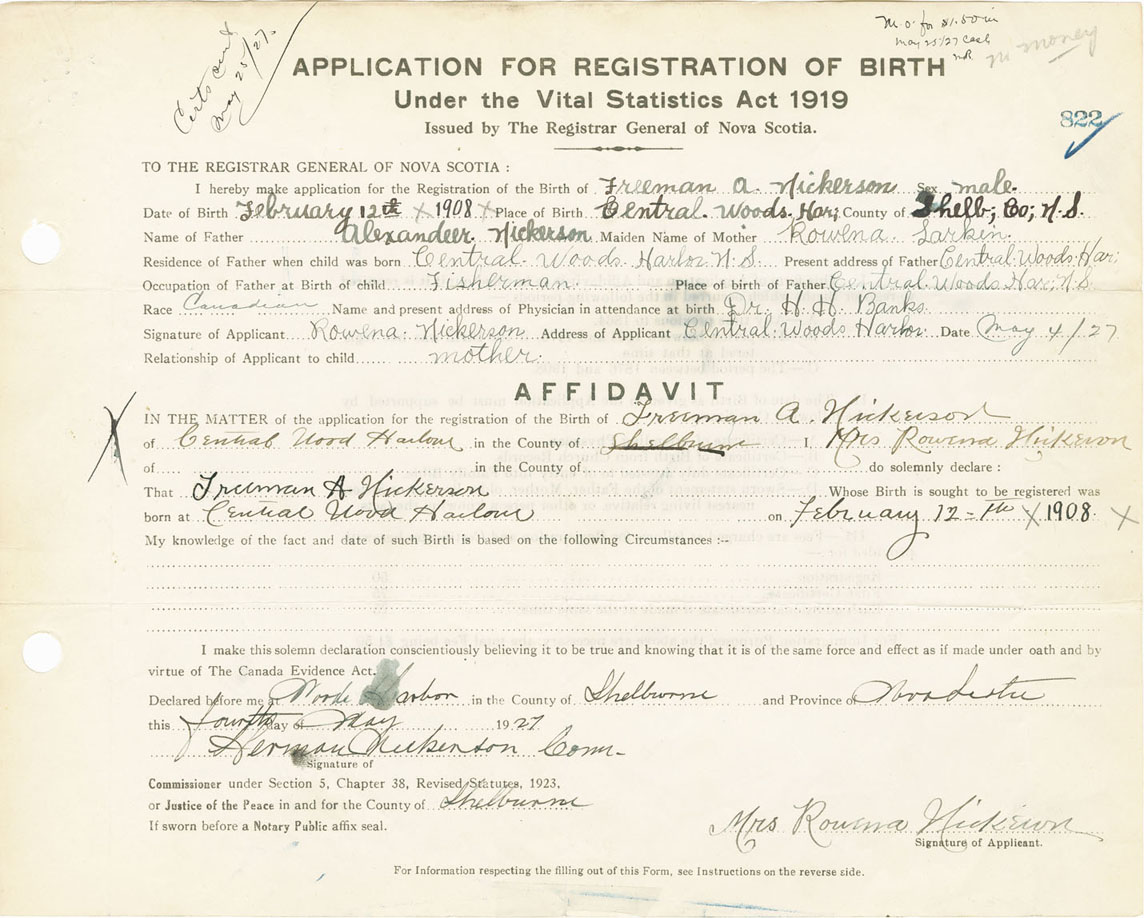 Certs sent
May 25/27.
M.O. for $1.50 in
May 25/27 Cash
NR
no money
APPLICATION FOR REGISTRATION OF BIRTH
Under the Vital Statistics Act 1919
Issued by The Registrar General of Nova Scotia.
822
TO THE REGISTRAR GENERAL OF NOVA SCOTIA :
I hereby make application for the Registration of the Birth of Freeman A. Nickerson Sex male.
Date of Birth February 12th X 1908 X Place of Birth Central. Woods. Har; County of Shelb; Co; N.S.
Name of Father Alexandeer. Nickerson Maiden Name of Mother Rowena. Larkin.
Residence of Father when child was born Central. Woods. Harbor. N.S. Present address of Father Central. Woods. Har;
Occupation of Father at Birth of child Fisherman. Place of birth of Father Central. Woods. Har; N.S.
Race Canadian Name and present address of Physician in attendance at birth Dr. H. H. Banks.
Signature of Applicant Rowena. Nickerson Address of Applicant Central. Woods Harbor. Date May 4/27
Relationship of Applicant to child mother.
AFFIDAVIT
X
IN THE MATTER of the application for the registration of the Birth of Freeman A. Nickerson
of Central Wood Harbour in the County of Shelburne I, Mrs Rowena Nickerson
of in the County of do solemnly declare :
That Freeman A Nickerson Whose Birth is sought to be registered was
born at Central Wood Harbour on February 12 = th X 1908 X
My knowledge of the fact and date of such Birth is based on the following Circumstances :--
I make this solemn declaration conscientiously believing it to be true and knowing that it is of the same force and effect as if made under oath and by
virtue of The Canada Evidence Act.
Declared before me at Woods Harbor in the County of Shelburne and Province of Nova Scotia
this fourth day of May 1927
Herman Nickerson Com-
Signature of
Commissioner under Section 5, Chapter 38, Revised Statutes, 1923,
or Justice of the Peace in and for the County of Shelburne
If sworn before a Notary Public affix seal.
Mrs Rowena Nickerson
Signature of Applicant.
For Information respecting the filling out of this Form, see Instructions on the reverse side.